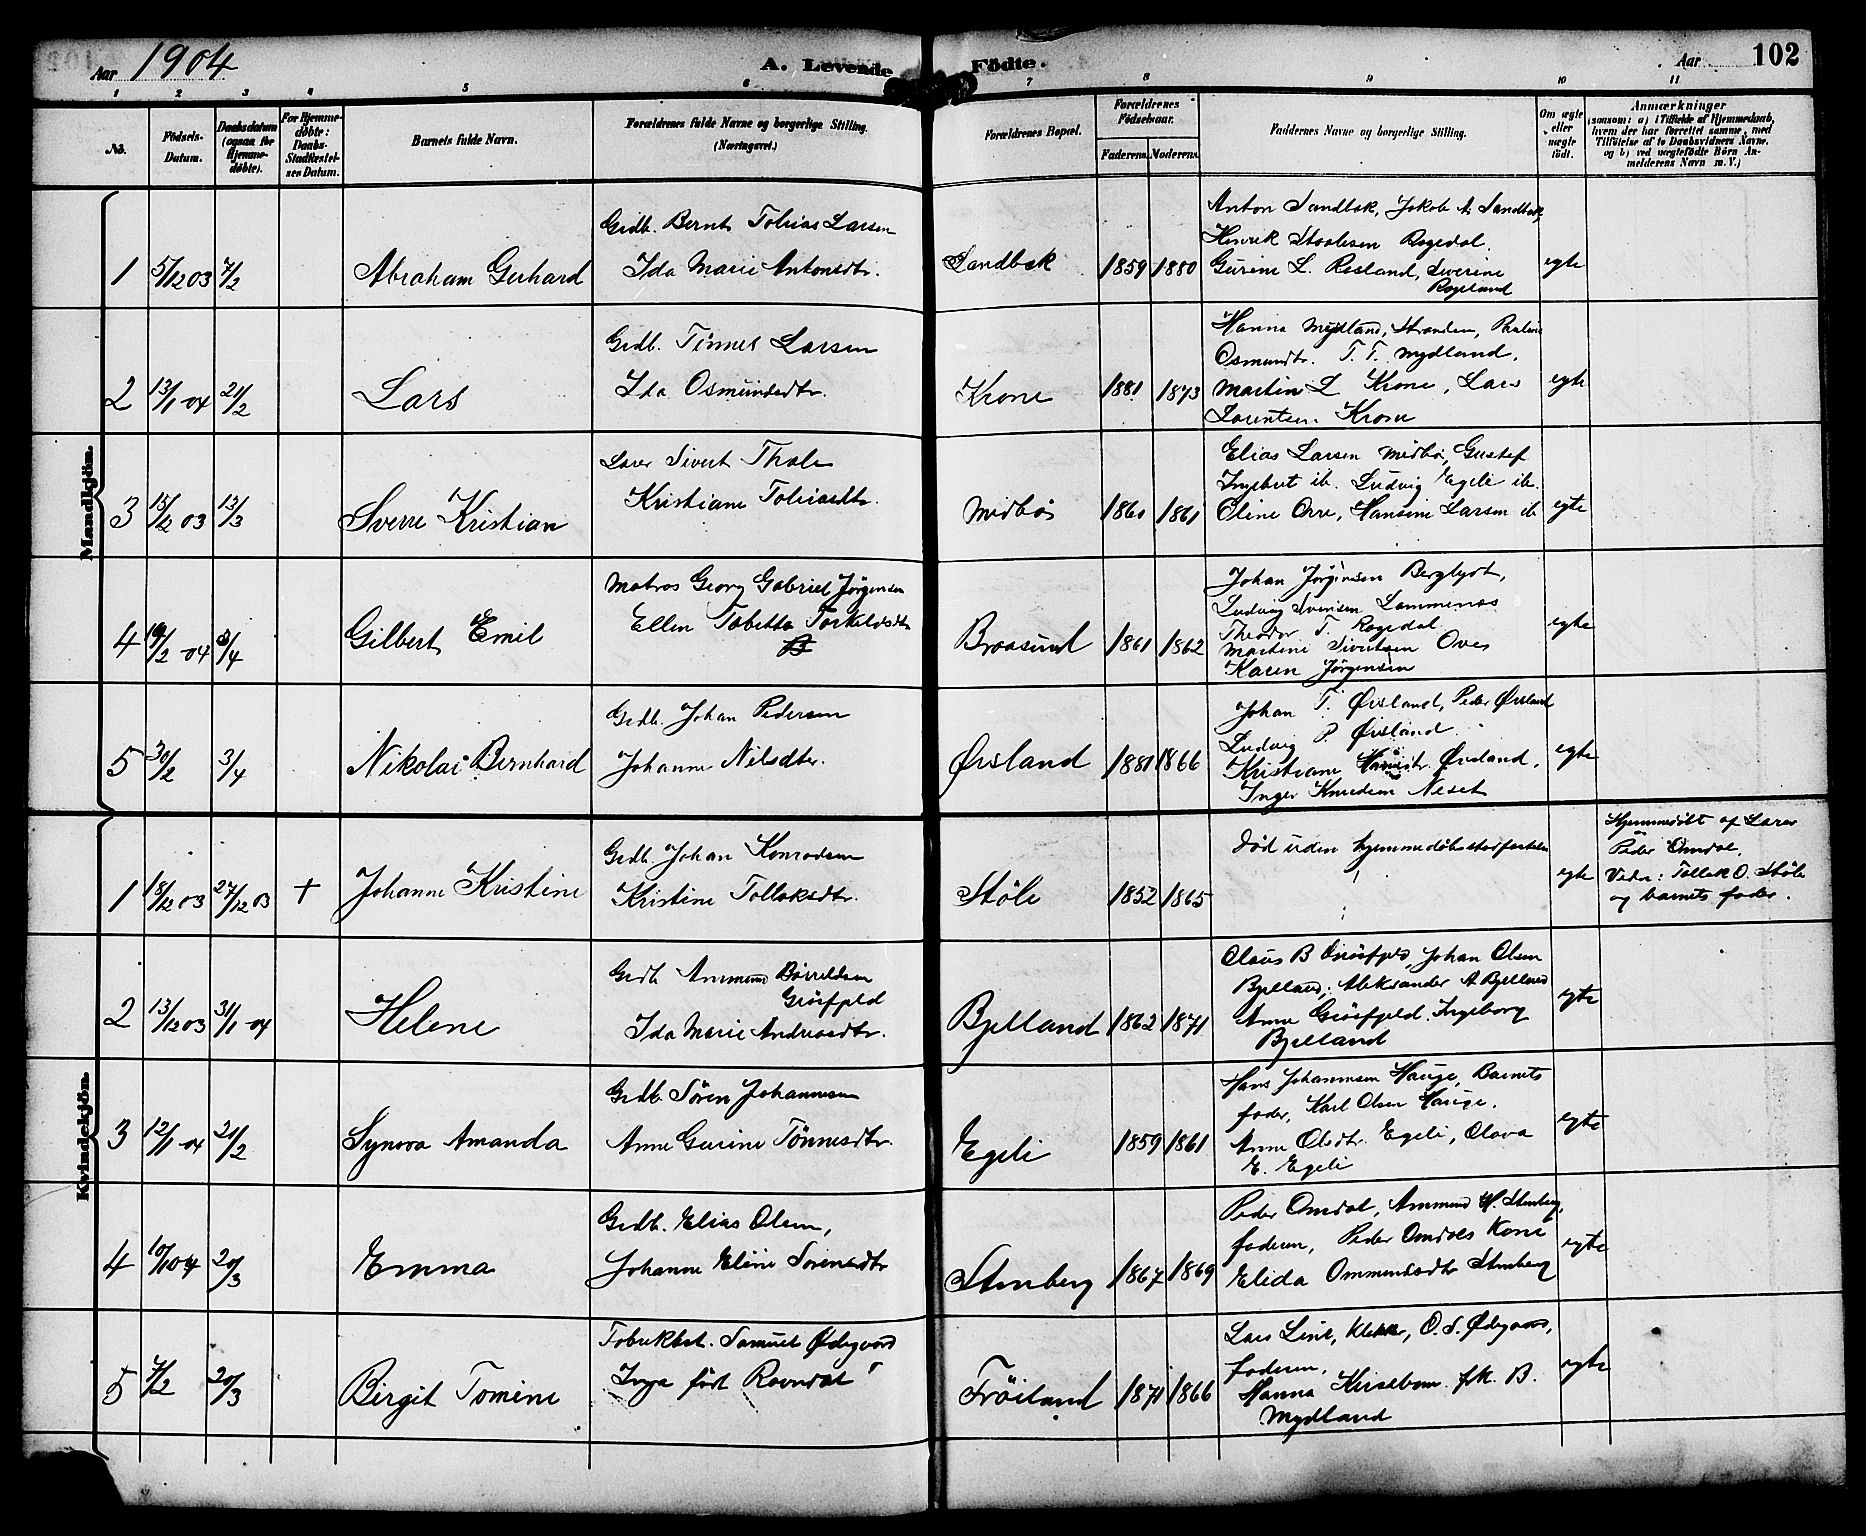 Aar 1904
A. Levende Födte.
Aar 102
1 2 3 4 5 6 7 8 9 10 11
No.
Födsels-Datum.
Daabsdatum (ogsaa for Hjemmedöbte).
For Hjemmedöbte: Daabs-Stadfæstelses Datum.
Barnets fulde Navn.
Forældrenes fulde Navne og borgerlige Stilling. (Næringsvei.)
Forældrenes Bopæl.
Forældrenes Födselsaar.
Faderens. Moderens.
Faddernes Navne og borgerlige Stilling.
Om ægte eller uægte födt.
Anmærkninger
(saasom: a) i Tilfælde af Hjemmedaab, hvem der har forrettet samme, med Tilföielse af to Daabsvidners Navne, og b) ved uægtefödte Börn Anmelderens Navn m. V.)
Mandkjön.
1 5/12 03 7/2 Abraham Gerhard
Grdb. Bernt Tobias Larsen
Ida Marie Antonsdtr.
Sandbæk 1859 1880
Anton Sandbæk, Jakob A Sandbæk,
Henrik Staalesen Rogedal.
Gurine L. Resland, Severine
Rogeland
egte
2 13/1 04 21/2 Lars
Grdb. Tönnes Larsen
Ida Osmundsdtr.
Krone 1881 1873
Hanna Mydland, Stranden, Pauline
Osmundtr. T. T. Mydland.
Martin L Krone, Lars
Lorentsen. Krone
egte
3 15/12 03 13/3 Sverre Kristian
Lærer Sivert Thale
Kristiane Tobiasdtr.
Midbö 1861 1861
Elias Larsen Midbö, Gustef
Ingebret ib. Ludvig Egeli ib.
Oline Orre, Hansine Larsen ib
egte
4 19/2 04 3/4 Gilbert Emil
Matros Georg Gabriel Jørgensen
Ellen Tabetta Torkeldsdtr
Braasund 1861 1862
Johan Jørginsen Berglyd,
Ludvig Svensen Lammenæs
Theodor T. Rogedal.
Martine Sivertsen Oves
Karen Jørgensen
egte
5 30/2 3/4 Nikolai Bernhard
Grdb. Johan Pedersen
Johanne Nilsdtr.
Øisland 1881 1866
Johan T. Øisland, Peder Øisland
Ludvig P Øisland.
Kristiane Øisland.
Inger Knudsen Neset
egte
Kvindekjön.
1 18/12 03 27/12 03 + Johanne Kristine
Grdb. Johan Konradsen
Kristine Tollaksdtr.
Stöle 1852 1865
Död uden hjemmedöbstadfæstelse
egte
Hjemmedöbt af Lærer
Peder Omdal.
Vidn: Tollak O. Støle
og barnets fader.
2 13/12 03 31/1 04 Helene
Grdb Ammund Bårreldsen
Gröifjeld
Ida Marie Andreasdtr.
Bjelland 1862 1871
Olaus B Gröifjeld, Johan Olsen
Bjelland, Aleksander A Bjelland
Anne Gröifjeld. Ingeborg
Bjelland
egte
3 12/1 04 21/2 Synova Amanda
Grdb. Sören Johannesen
Anne Gurine Tönnesdtr.
Egeli 1859 1861
Hans Johannesen Hauge, Barnets
fader, Karl Olsen Hauge.
Anne Olsdtr. Egeli, Olava
E. Egeli
egte
4 10/1 04 20/3 Emma
Grdb. Elias Olsen,
Johanne Eline Sørensdtr
Stenberg 1867 1869
Peder Omdal, Ammund H. Stenberg,
faderen, Peder Omdals Kone
Elida Ommundsdtr Stenberg
egte
5 7/2 20/3 Birgit Tomine
Fabrikbst. Samuel Ødegaard
Inga født Ravndal
Fröiland 1871 1866
Lars Line, Klokker, O. S. Ødegaard,
Faderen,
Hanna Kirsebom. frk. B.
Mydland
egte